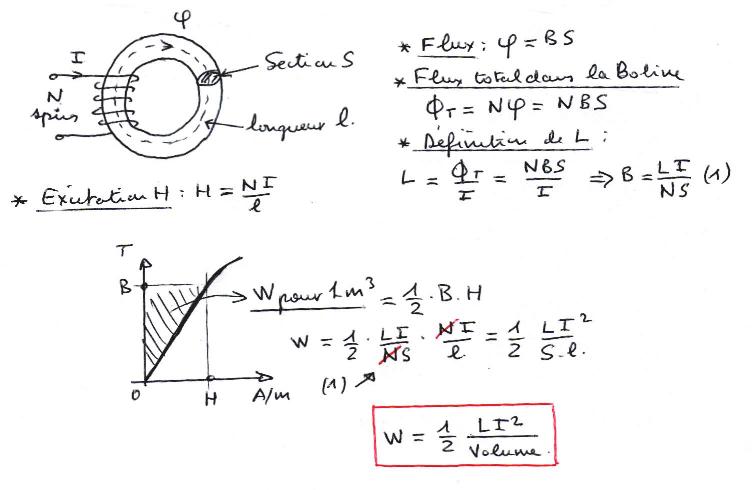 φ
I
N
spires
Section S
longueur l.
* Flux : φ = BS
* Flux total dans la Bobine
ϕT = Nφ = NBS
* Définition de L :
L = ϕT/I = NBS/I ⇒ B = LI/NS (1)
* Excitation H : H = NI/l
T
B
0
H
A/m
W pour 1 m³ = 1/2 · B. H
W = 1/2 · LI/NS · NI/l = 1/2 LI²/S.l.
(1)
W = 1/2 LI²/Volume.